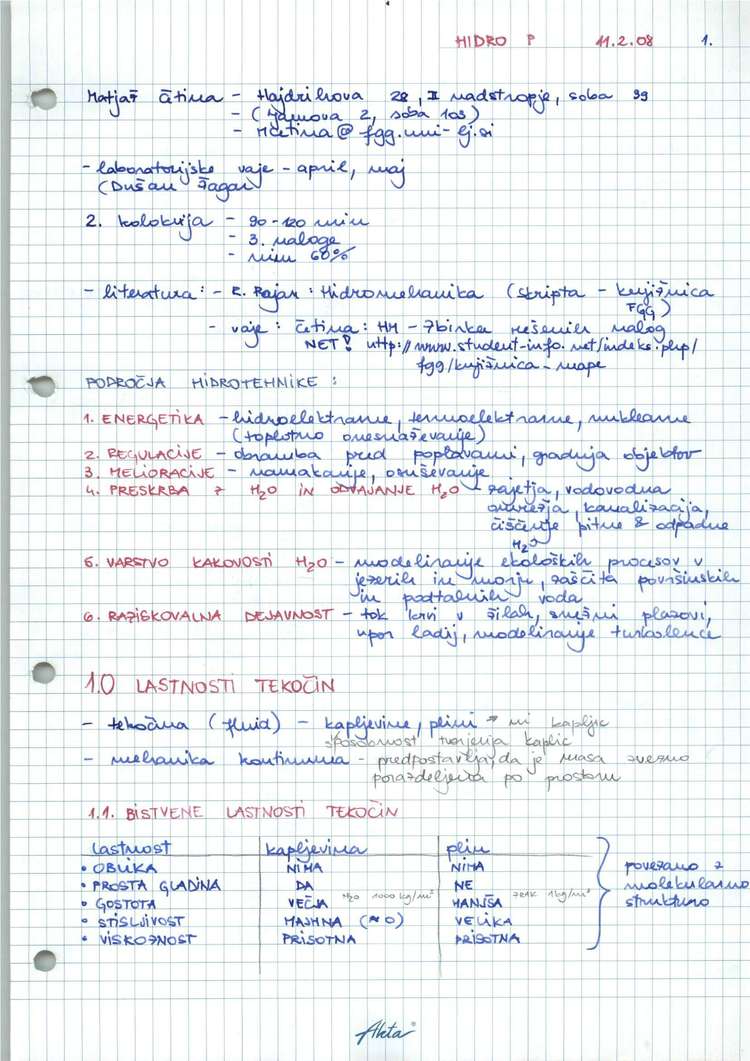 HIDRO P 11.2.08 1.
Matjaž Četina - Hajdrihova 28, II nadstropje, soba 39
- (Jamova 2, soba 103)
- mcetina@fgg.uni-lj.si
- laboratorijske vaje - april, maj
(Dušan Žagar)
2. kolokvija - 90-120 min
- 3. naloge
- min 60%
- literatura: - R. Rajar: Hidromehanika (skripta - knjižnica
FGG)
- vaje: Četina: HM - zbirka rešenih nalog
NET! http://www.student-info.net/indeks.php/
fgg/knjižnica-mape
PODROČJA HIDROTEHNIKE:
1. ENERGETIKA - hidroelektrarne, termoelektrarne, nuklearne
(toplotno onesnaževanje)
2. REGULACIJE - obramba pred poplavami, gradnja objektov
3. MELIORACIJE - namakanje, osuševanje
4. PRESKRBA Z H2O IN ODVAJANJE H2O - zajetja, vodovodna
omrežja, kanalizacija,
čiščenje pitne & odpadne
H2O
5. VARSTVO KAKOVOSTI H2O - modeliranje ekoloških procesov v
jezerih in morju, zaščita površinskih
in podtalnih voda
6. RAZISKOVALNA DEJAVNOST - tok krvi v žilah, snežni plazovi,
upor ladij, modeliranje turbolence
1.0 LASTNOSTI TEKOČIN
- tekočina (fluid) - kapljevine, plini → ni kapljic
sposobnost tvorjenja kaplic
- mehanika kontinuma - predpostavlja, da je masa zvezno
porazdeljena po prostoru
1.1. BISTVENE LASTNOSTI TEKOČIN
lastnost kapljevina plin
• OBLIKA NIMA NIMA povezano z
• PROSTA GLADINA DA NE molekularno
• GOSTOTA VEČJA H2O 1000 kg/m3 MANJŠA ZRAK 1 kg/m3 strukturo
• STISLJIVOST MAJHNA (≈0) VELIKA
• VISKOZNOST PRISOTNA PRISOTNA
Akta